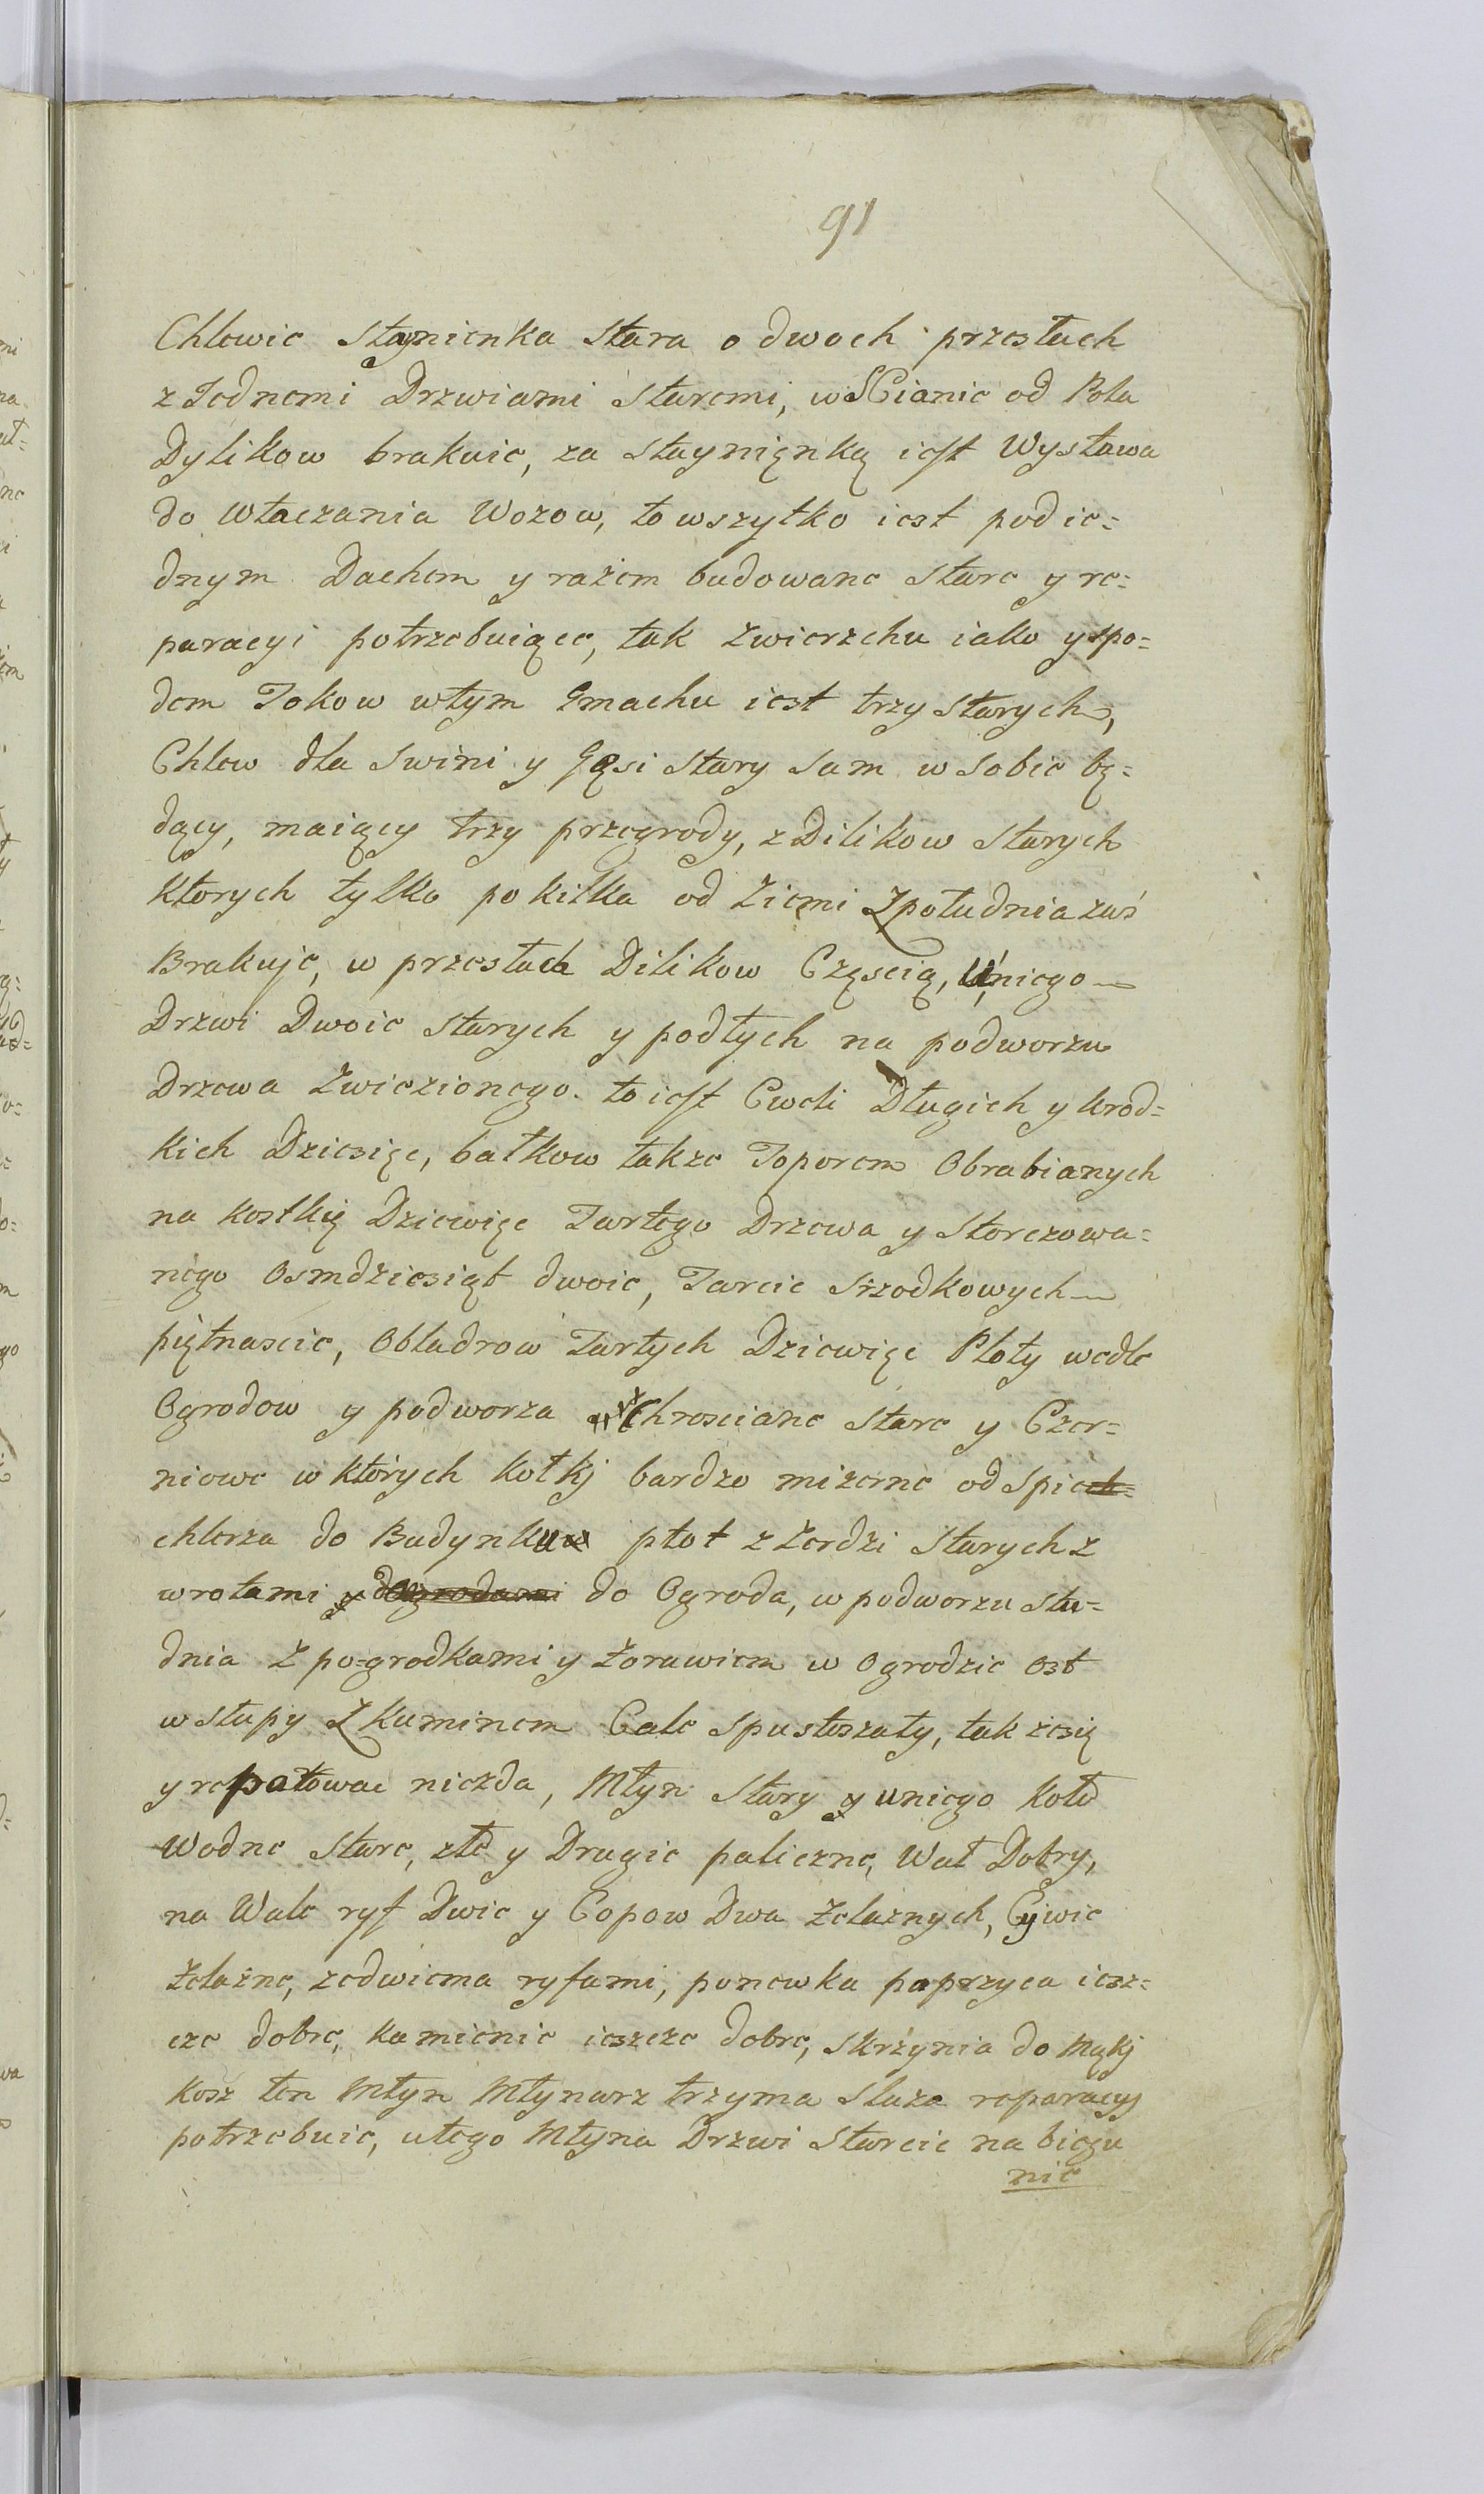 91
Chlewie Staynienka Stara o dwoch przesłach
z Jednemi Drzwiami Staremi, w SCianie od Pola
Dylikow brakuie, za Staynięnką iest Wystawa
do Wtaczania Wozow, to wszytko iest pod ie=
dnym Dachem y rażem budowane Stare y re=
paracyi potrzebuiące, tak Zwierzchu iako y spo=
dem Tokow wtym Gmachu iest trzy Starych,
Chlew dla Swini y Gęsi Stary Sam w Sobie bę=
dący, maiący trzy przegrody, z Dilikow Starych
Ktorych tylko po kilka od Ziemi Zpołudnia zaś
Brakuje, w przesłach Dilikow Częscią, Uniego
Drzwi Dwoie Starych y podłych na podworzu
Drzewa Zwiezionego to iest Cweli Długich y krod=
kich Dziesięc, bałkow takze Toporem Obrabianych
na kostkię Dziewięc Tartego Drzewa y Storczowa=
nego Osmdziesiąt dwoie, Tarcic Srzodkowych
piętnascie, Obladrow Tartych Dziewięc Płoty wedle
Ogrodow y podworza z Chrosciane Stare y Czer=
niowe w których Kołkj bardzo mizerne od Spich=
chlerza do Budynkuw płot z Żerdzi Starych z
wrotami y do Ogrodami do Ogroda, w podworzu Stu=
dnia Z po=grodkami y Żorawiem w Ogrodzie Ost
w Słupy Z Kuminem Cale Spustoszały, tak żesię
y repatowac niezda, Młyn Stary y uniego Koło
Wodne Stare, złe y Drugie paliczne, Wał Dobry,
na Wale ryf Dwie y Copow Dwa Żelaznych, Cywie
Żelazne, zedwiema ryfami, panewka paprzyca iesz=
cze dobre, kamienie ieszcze dobre, Skrzynia do Mąkj
Kosz ten Młyn Młynarz trzyma Sluza reparacyj
potrzebuie, utego Młyna Drzwi Starcie na biegu
nie